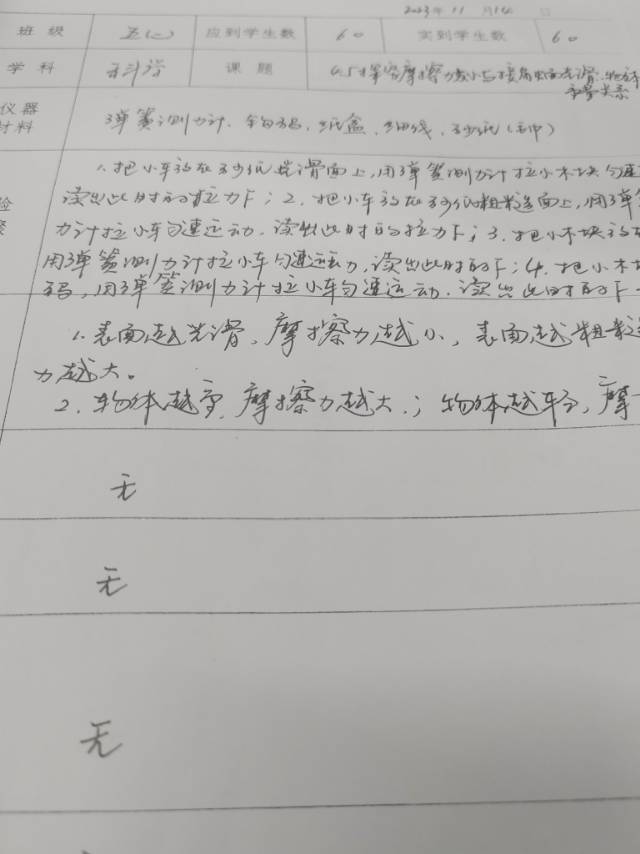 2023年 11 月14 日
班 级 五(二) 应到学生数 60 实到学生数 60
学 科 科学 课 题 4.5探究摩擦力大小与接触面光滑、物体
重量关系
仪器
材料 弹簧测力计、钩码、纸盒、细线、砂纸(
1.把小车放在砂纸光滑面上,用弹簧测力计拉小木块匀速
验 读出此时的拉力F;2.把小车放在砂纸粗糙面上,用弹簧
力计拉小车匀速运动,读出此时的拉力F;3.把小木块放
用弹簧测力计拉小车匀速运动,读出此时的F;4.把小木
码,用弹簧测力计拉小车匀速运动,读出此时的F
1.表面越光滑,摩擦力越小,表面越粗糙
力越大。
2.物体越重,摩擦力越大;物体越轻,摩
无
无
无